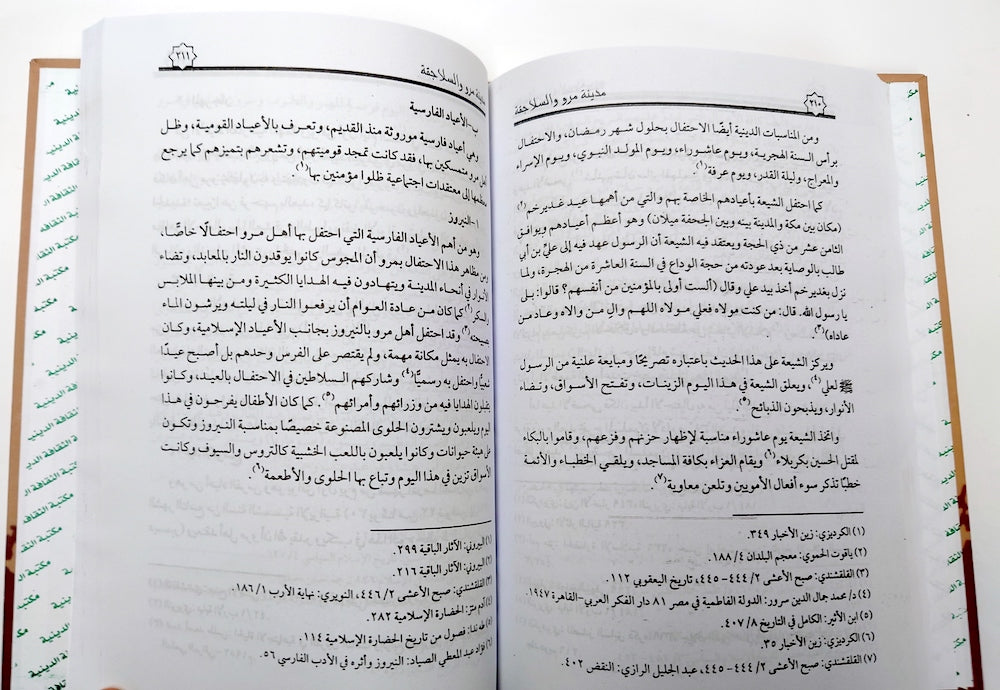 ٢١٠
مدينة مرو والسلاجقة
ومن المناسبات الدينية أيضًا الاحتفال بحلول شهر رمضان، والاحتفال
برأس السنة الهجرية، ويوم عاشوراء، ويوم المولد النبوي، ويوم الإسراء
والمعراج، وليلة القدر، ويوم عرفة(١).
كما احتفل الشيعة بأعيادهم الخاصة بهم والتي من أهمها عيد غدير خم(٢)
(مكان بين مكة والمدينة بينه وبين الجحفة ميلان) وهو أعظم أعيادهم ويوافق
الثامن عشر من ذي الحجة ويعتقد فيه الشيعة أن الرسول عهد فيه إلى عليّ بن أبي
طالب بالوصاية بعد عودته من حجة الوداع في السنة العاشرة من الهجرة، ولما
نزل بغدير خم أخذ بيد علي وقال (ألست أولى بالمؤمنين من أنفسهم؟ قالوا: بلى
يا رسول الله. قال: من كنت مولاه فعلي مولاه اللهم والِ من والاه وعاد من
عاداه)(٣).
ويركز الشيعة على هذا الحديث باعتباره تصريحًا ومبايعة علنية من الرسول
ﷺ لعلي(٤)، ويعلق الشيعة في هذا اليوم الزينات، وتفتح الأسواق، وتضاء
الأنوار، ويذبحون الذبائح(٥).
واتخذ الشيعة يوم عاشوراء مناسبة لإظهار حزنهم وفزعهم، وقاموا بالبكاء
لمقتل الحسين بكربلاء(٦) ويقام العزاء بكافة المساجد، ويلقي الخطباء والأئمة
خطبًا تذكر سوء أفعال الأمويين وتلعن معاوية(٧).
(١) الكرديزي: زين الأخبار ٣٤٩.
(٢) ياقوت الحموي: معجم البلدان ٤/ ١٨٨.
(٣) القلقشندي: صبح الأعشى ٢/ ٤٤٤- ٤٤٥، تاريخ اليعقوبي ١١٢.
(٤) د/ محمد جمال الدين سرور: الدولة الفاطمية في مصر ٨١ دار الفكر العربي-القاهرة ١٩٤٧.
(٥) ابن الأثير: الكامل في التاريخ ٨/ ٤٠٧.
(٦) الكرديزي: زين الأخبار ٣٥.
(٧) القلقشندي: صبح الأعشى ٢/ ٤٤٤- ٤٤٥، عبد الجليل الرازي: النقض ٤٠٢.
مدينة مرو والسلاجقة
٢١١
ب-الأعياد الفارسية
وهي أعياد فارسية موروثة منذ القديم، وتعرف بالأعياد القومية، وظل
أهل مرو متمسكين بها، فقد كانت تمجد قوميتهم، وتشعرهم بتميزهم كما يرجع
معظمها إلى معتقدات اجتماعية ظلوا مؤمنين بها(١).
١-النيروز
وهو من أهم الأعياد الفارسية التي احتفل بها أهل مرو احتفالًا خاصًّا،
ومن مظاهر هذا الاحتفال بمرو أن المجوس كانوا يوقدون النار بالمعابد، وتضاء
الأنوار في أنحاء المدينة ويتهادون فيه الهدايا الكثيرة ومن بينها الملابس
والسكر(٢) كما كان من عادة العوام أن يرفعوا النار في ليلته ويرشون الماء
صبيحته(٣) وقد احتفل أهل مرو بالنيروز بجانب الأعياد الإسلامية، وكان
الاحتفال به يمثل مكانة مهمة، ولم يقتصر على الفرس وحدهم بل أصبح عيدًا
شعبيًا واحتفل به رسميًّا(٤) وشاركهم السلاطين في الاحتفال بالعيد، وكانوا
يتقبلون الهدايا فيه من وزرائهم وأمرائهم(٥). كما كان الأطفال يفرحون في هذا
اليوم ويلعبون ويشترون الحلوى المصنوعة خصيصًا بمناسبة النيروز وتكون
على هيئة حيوانات وكانوا يلعبون باللعب الخشبية كالتروس والسيوف وكانت
الأسواق تزين في هذا اليوم وتباع بها الحلوى والأطعمة(٦).
(١) البيروني: الآثار الباقية ٢٩٩.
(٢) البيروني: الآثار الباقية ٢١٦.
(٣) القلقشندي: صبح الأعشى ٢/ ٤٤٦، النويري: نهاية الأرب ١/ ١٨٦.
(٤) آدم متز: الحضارة الإسلامية ٢٨٢.
(٥) طه ندا: فصول من تاريخ الحضارة الإسلامية ١١٤.
(٦) فؤاد عبد المعطي الصياد: النيروز وأثره في الأدب الفارسي ٥٦.